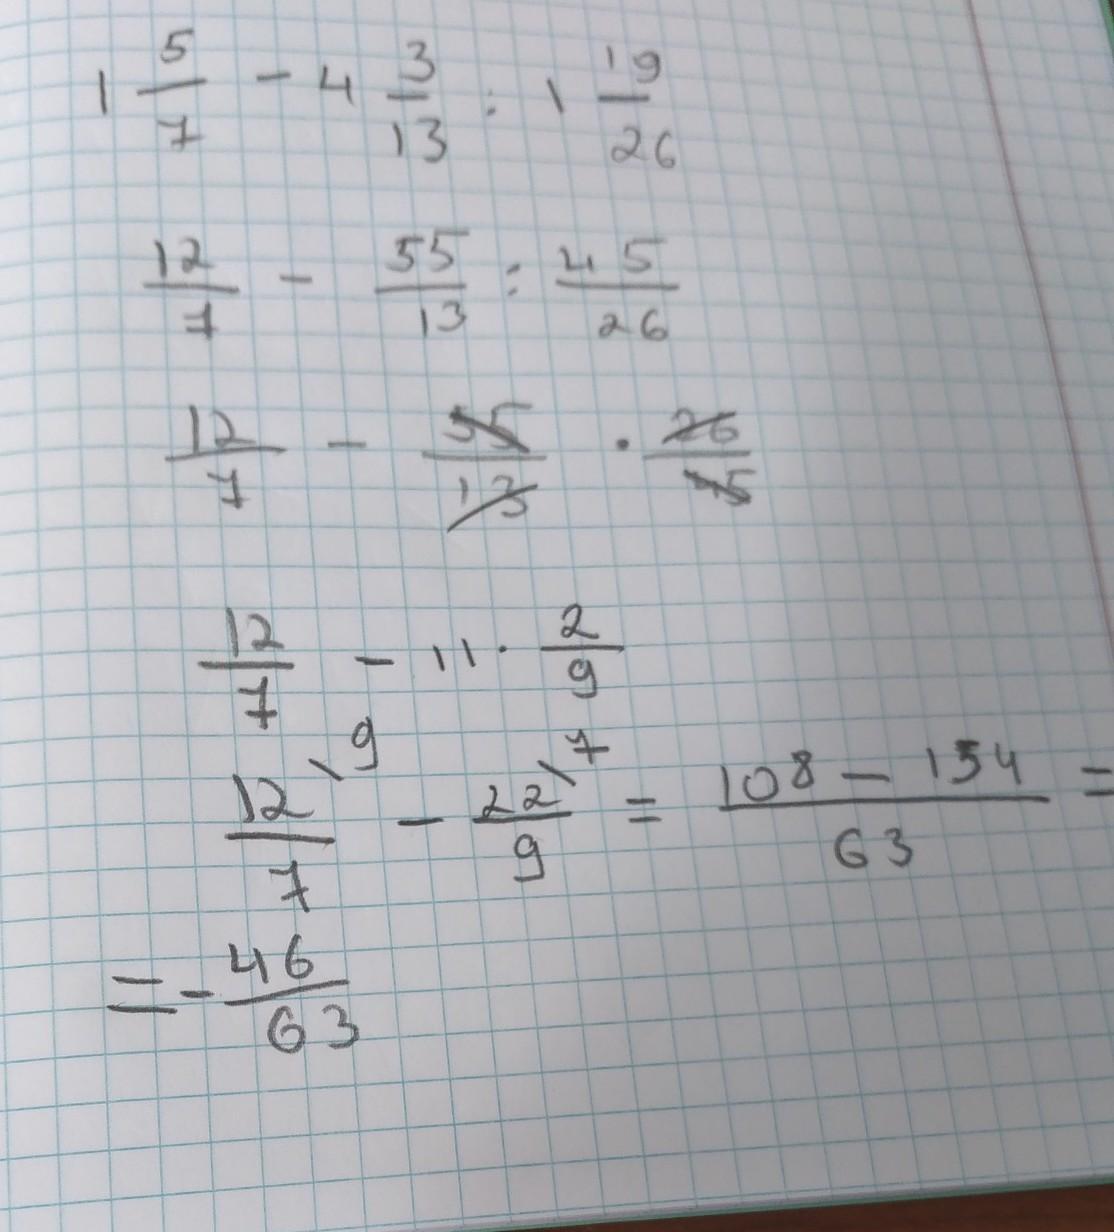 1 5/7 - 4 3/13 : 1 19/26
12/7 - 55/13 : 45/26
12/7 - 55/13 · 26/45
12/7 - 11 · 2/9
12/7 \9 - 22/9 \7 = 108 - 154/63 =
= - 46/63